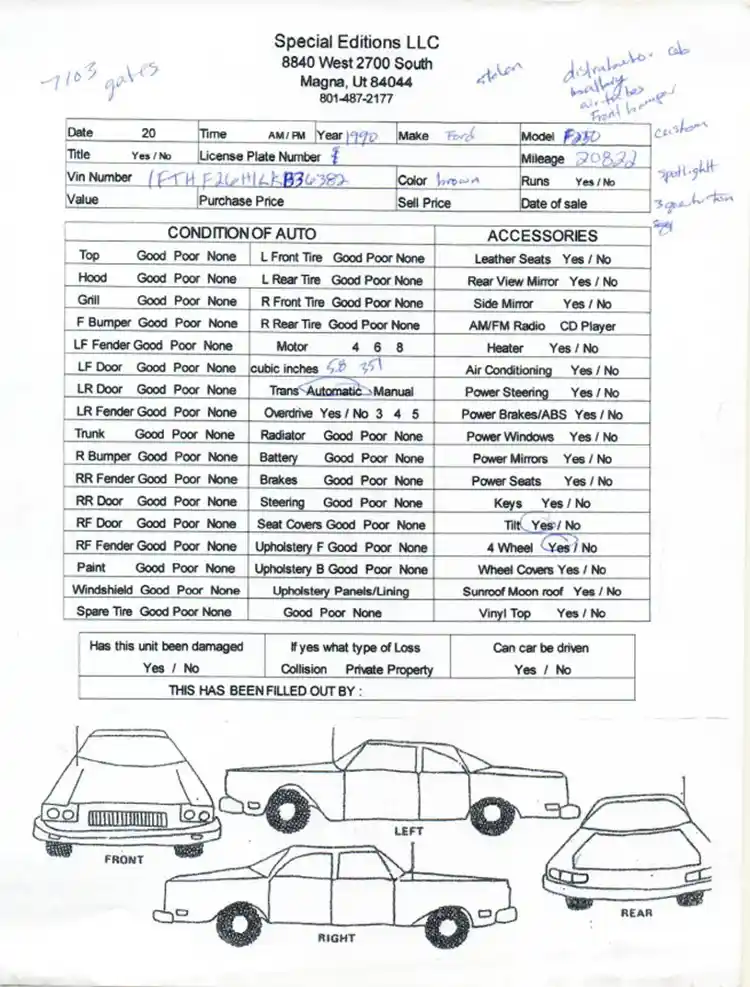 Special Editions LLC
8840 West 2700 South
Magna, Ut 84044
801-487-2177
7103 gates
stolen
distributor cab
battery
air tubes
Front bumper
custom
spotlight
Date 20 Time AM / PM Year 1990 Make Ford Model F250
Title Yes / No License Plate Number Mileage 20822
Vin Number 1FTHF26H1LKB36382 Color brown Runs Yes / No
Value Purchase Price Sell Price Date of sale
CONDITION OF AUTO ACCESSORIES
Top Good Poor None L Front Tire Good Poor None Leather Seats Yes / No
Hood Good Poor None L Rear Tire Good Poor None Rear View Mirror Yes / No
Grill Good Poor None R Front Tire Good Poor None Side Mirror Yes / No
F Bumper Good Poor None R Rear Tire Good Poor None AM/FM Radio CD Player
LF Fender Good Poor None Motor 4 6 8 Heater Yes / No
LF Door Good Poor None cubic inches 5.8 351 Air Conditioning Yes / No
LR Door Good Poor None Trans Automatic Manual Power Steering Yes / No
LR Fender Good Poor None Overdrive Yes / No 3 4 5 Power Brakes/ABS Yes / No
Trunk Good Poor None Radiator Good Poor None Power Windows Yes / No
R Bumper Good Poor None Battery Good Poor None Power Mirrors Yes / No
RR Fender Good Poor None Brakes Good Poor None Power Seats Yes / No
RR Door Good Poor None Steering Good Poor None Keys Yes / No
RF Door Good Poor None Seat Covers Good Poor None Tilt Yes / No
RF Fender Good Poor None Upholstery F Good Poor None 4 Wheel Yes / No
Paint Good Poor None Upholstery B Good Poor None Wheel Covers Yes / No
Windshield Good Poor None Upholstery Panels/Lining Sunroof Moon roof Yes / No
Spare Tire Good Poor None Good Poor None Vinyl Top Yes / No
Has this unit been damaged If yes what type of Loss Can car be driven
Yes / No Collision Private Property Yes / No
THIS HAS BEEN FILLED OUT BY :
FRONT
LEFT
RIGHT
REAR